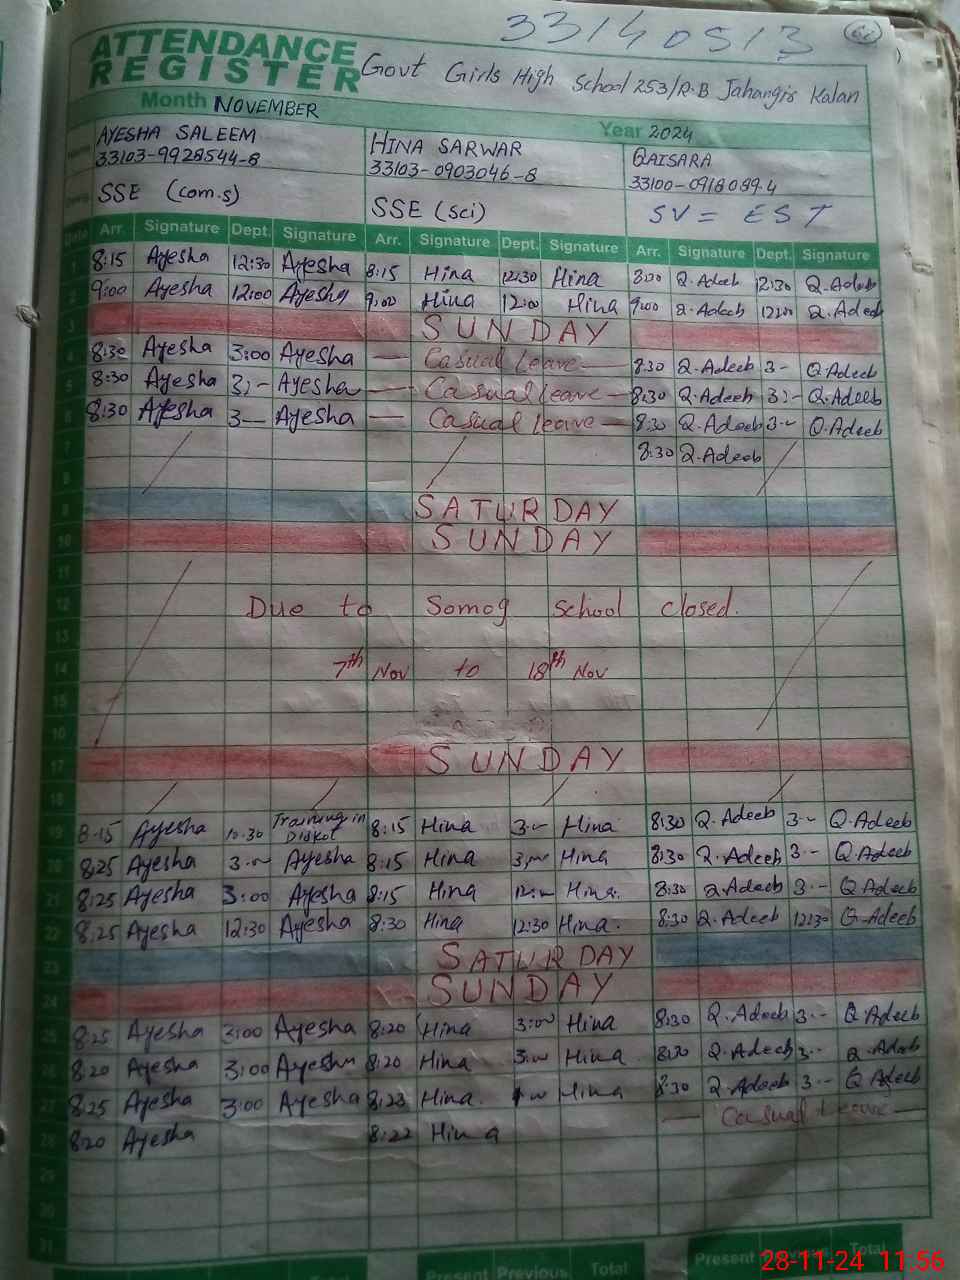 33140513
61
ATTENDANCE
REGISTER Govt Girls High School 253/R.B Jahangir Kalan
Month NOVEMBER
Year 2024
AYESHA SALEEM HINA SARWAR QAISARA
33103-9928544-8 33103-0903046-8 33100-0918089-4
SSE (com.s) SSE (sci) SV = EST
Date Arr. Signature Dept. Signature Arr. Signature Dept. Signature Arr. Signature Dept. Signature
1 8:15 Ayesha 12:30 Ayesha 8:15 Hina 12:30 Hina 8:30 Q.Adeeb 12:30 Q.Adeeb
2 9:00 Ayesha 12:00 Ayesha 9:00 Hina 12:00 Hina 9:00 Q.Adeeb 12:00 Q.Adeeb
3 SUNDAY
4 8:30 Ayesha 3:00 Ayesha — Casual Leave — 8:30 Q.Adeeb 3- Q.Adeeb
5 8:30 Ayesha 3:- Ayesha — Casual Leave — 8:30 Q.Adeeb 3:- Q.Adeeb
6 8:30 Ayesha 3— Ayesha — Casual Leave — 8:30 Q.Adeeb 3-- Q.Adeeb
7 8:30 Q.Adeeb
8
9 SATURDAY
10 SUNDAY
11
12 Due to Somog school closed.
13
14 7th Nov to 18th Nov
15
16
17 SUNDAY
18
19 8:15 Ayesha 10:30 Training in Diskot 8:15 Hina 3:-- Hina 8:30 Q.Adeeb 3-- Q.Adeeb
20 8:25 Ayesha 3:00 Ayesha 8:15 Hina 3:00 Hina 8:30 Q.Adeeb 3-- Q.Adeeb
21 8:25 Ayesha 3:00 Ayesha 8:15 Hina Hina. 8:30 Q.Adeeb 3:-- Q.Adeeb
22 8:25 Ayesha 12:30 Ayesha 8:30 Hina 12:30 Hina. 8:30 Q.Adeeb 12:30 Q.Adeeb
23 SATURDAY
24 SUNDAY
25 8:25 Ayesha 3:00 Ayesha 8:20 Hina 3:00 Hina 8:30 Q.Adeeb 3-- Q.Adeeb
26 8:20 Ayesha 3:00 Ayesha 8:20 Hina 3:00 Hina 8:30 Q.Adeeb 3-- Q.Adeeb
27 8:25 Ayesha 3:00 Ayesha 8:23 Hina. Hina 8:30 Q.Adeeb 3-- Q.Adeeb
28 8:20 Ayesha 8:22 Hina — Casual Leave —
29
30
31
Present Previous Total Present Previous Total
28-11-24 11:56